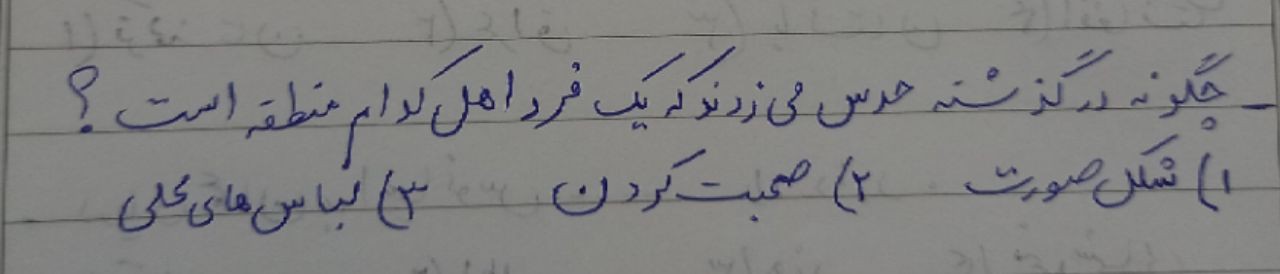 - چگونه در گذشته حدس می زدند که یک فرد اهل کدام منطقه است ؟
۱) شکل صورت ۲) صحبت کردن ۳) لباس های محلی